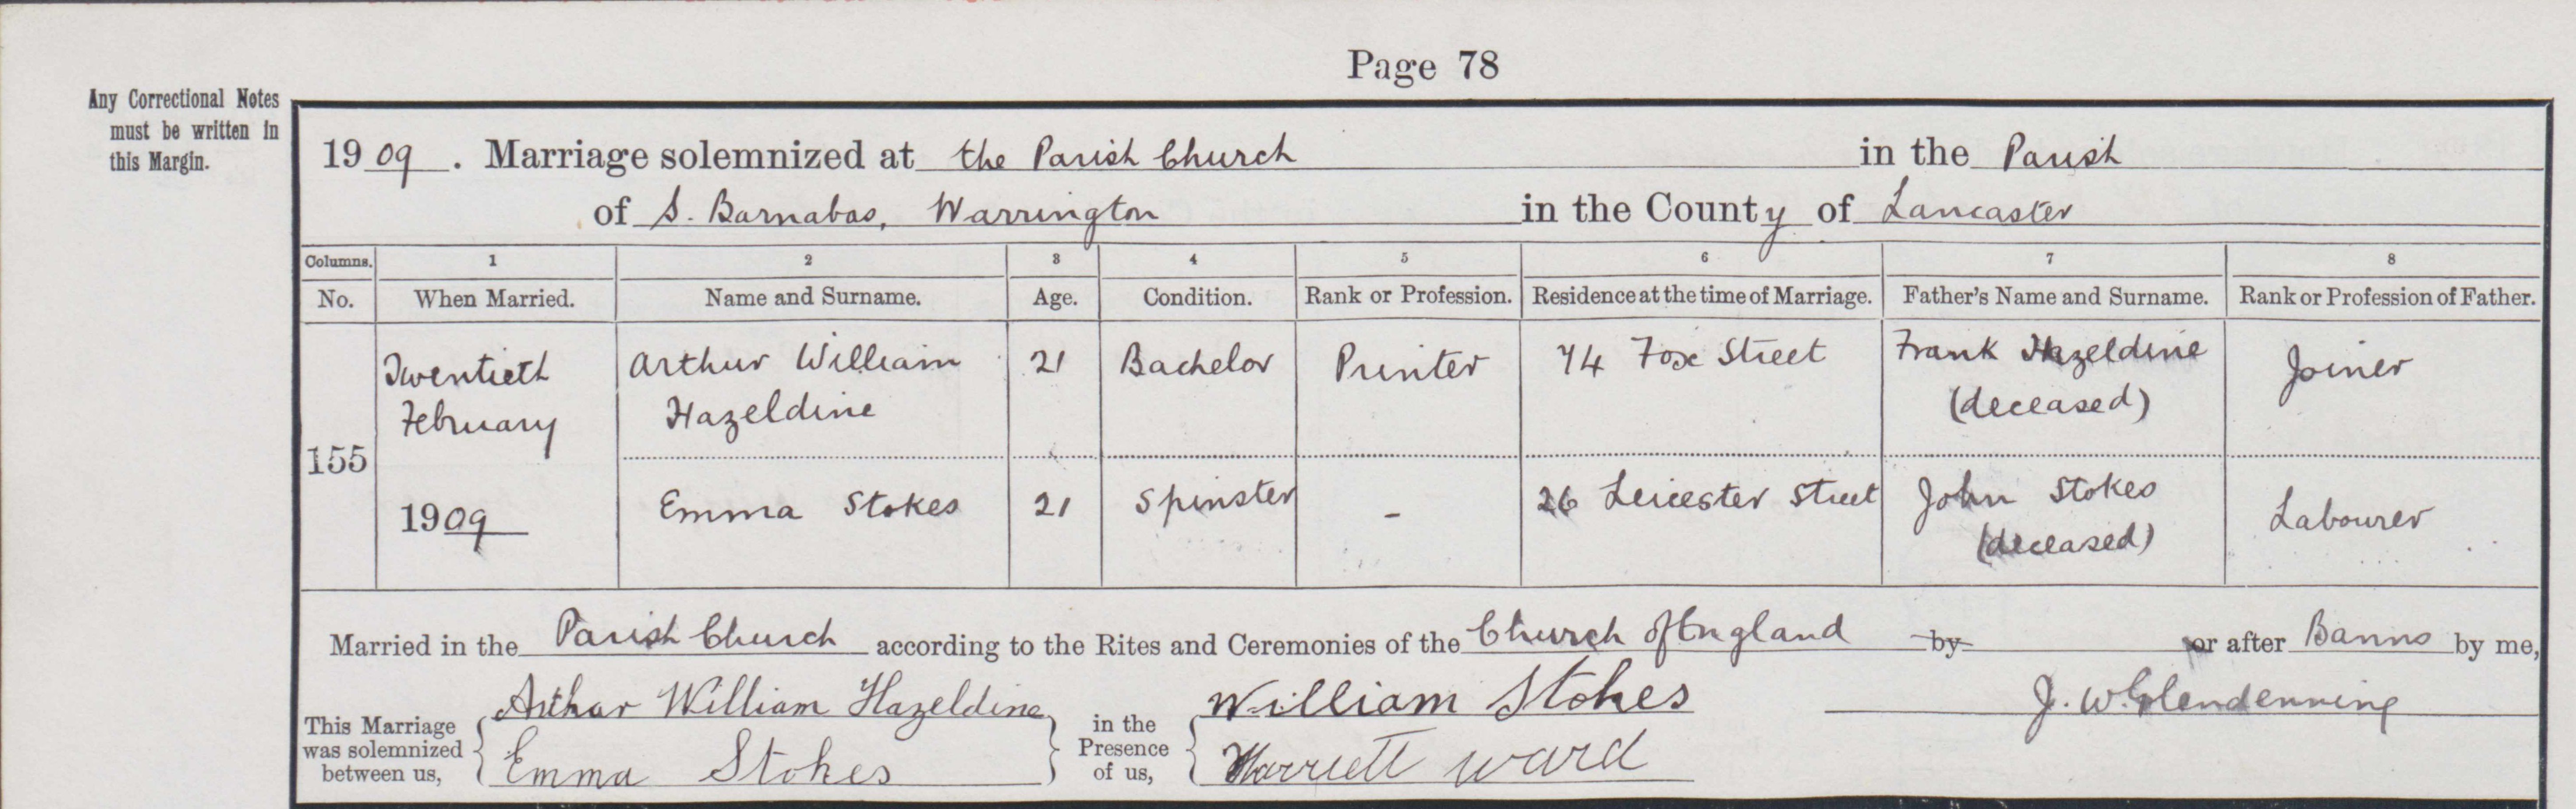 Page 78
Any Correctional Notes
must be written in
this Margin.
1909. Marriage solemnized at the Parish Church in the Parish
of S. Barnabas, Warrington in the County of Lancaster
Columns. 1 2 3 4 5 6 7 8
No. When Married. Name and Surname. Age. Condition. Rank or Profession. Residence at the time of Marriage. Father's Name and Surname. Rank or Profession of Father.
Twentieth Arthur William 21 Bachelor Printer 74 Fox Street Frank Hazeldine Joiner
February Hazeldine (deceased)
155
1909 Emma Stokes 21 Spinster - 26 Leicester Street John Stokes Labourer
(deceased)
Married in the Parish Church according to the Rites and Ceremonies of the Church of England by or after Banns by me,
This Marriage was solemnized between us, Arthur William Hazeldine in the Presence of us, William Stokes J. W. Glendenning
Emma Stokes Harriett Ward